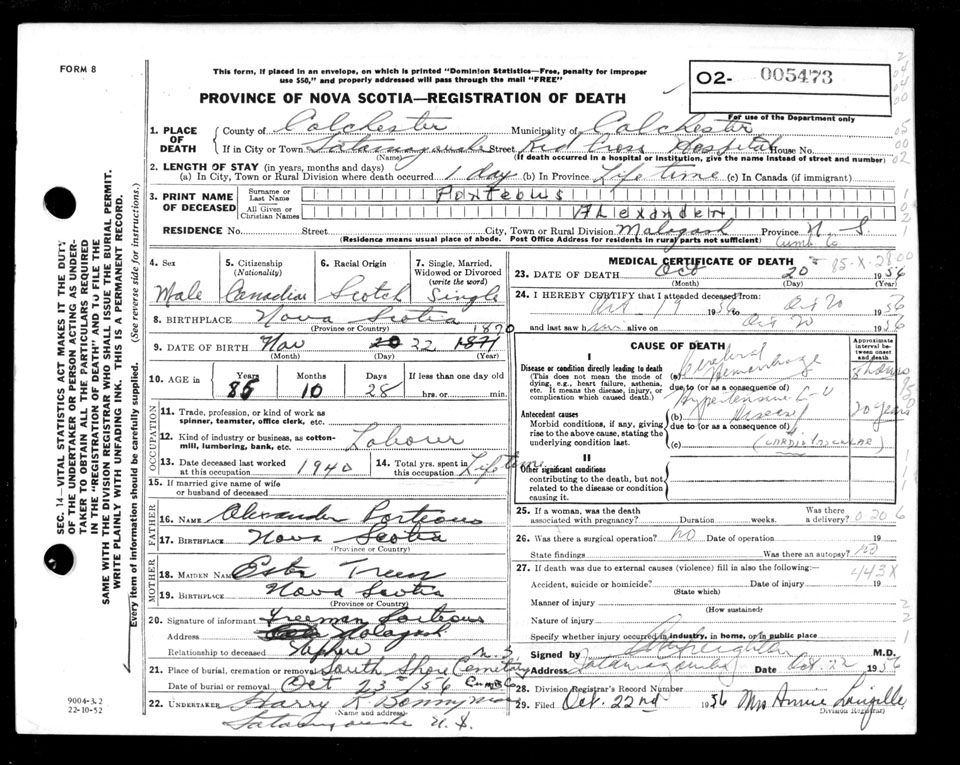 FORM 8
This form, if placed in an envelope, on which is printed "Dominion Statistics—Free, penalty for improper
use $50," and properly addressed will pass through the mail "FREE"
02- 005473
PROVINCE OF NOVA SCOTIA—REGISTRATION OF DEATH
For use of the Department only
1. PLACE OF DEATH County of Colchester Municipality of Colchester
If in City or Town Tatamagouche Street Red Cross Hospital House No.
(Name) (If death occurred in a hospital or institution, give the name instead of street and number)
2. LENGTH OF STAY (in years, months and days)
(a) In City, Town or Rural Division where death occurred 1 day (b) In Province Life time (c) In Canada (if immigrant)
3. PRINT NAME OF DECEASED Surname or Last Name Porteous
All Given or Christian Names Alexander
RESIDENCE No. Street City, Town or Rural Division Malagash Province N. S.
(Residence means usual place of abode. Post Office Address for residents in rural parts not sufficient) Cumb. Co.
4. Sex Male
5. Citizenship (Nationality) Canadian
6. Racial Origin Scotch
7. Single, Married, Widowed or Divorced (write the word) Single
8. BIRTHPLACE Nova Scotia
(Province or Country)
9. DATE OF BIRTH Nov 20 22 1871 1870
(Month) (Day) (Year)
10. AGE in Years 85 Months 10 Days 28 If less than one day old hrs. or min.
OCCUPATION
11. Trade, profession, or kind of work as spinner, teamster, office clerk, etc.
12. Kind of industry or business, as cotton-mill, lumbering, bank, etc. Labourer
13. Date deceased last worked at this occupation 1940
14. Total yrs. spent in this occupation Lifetime
15. If married give name of wife or husband of deceased
FATHER
16. NAME Alexander Porteous
17. BIRTHPLACE Nova Scotia
(Province or Country)
MOTHER
18. MAIDEN NAME Treen
19. BIRTHPLACE Nova Scotia
(Province or Country)
20. Signature of informant Freeman Porteous
Address Malagash
Relationship to deceased Nephew N. S.
21. Place of burial, cremation or removal South Shore Cemetery
Date of burial or removal Oct 23 /56 Cumb Co
22. UNDERTAKER Harry K. Bonnyman
(Name and address)
Tatamagouche N. S.
MEDICAL CERTIFICATE OF DEATH
85-X-28 00
23. DATE OF DEATH Oct 20 1956
(Month) (Day) (Year)
24. I HEREBY CERTIFY that I attended deceased from:
Oct 19 1956 to Oct 20 1956
and last saw him alive on Oct 20 1956
CAUSE OF DEATH
Approximate interval between onset and death
I
Disease or condition directly leading to death (a) Cerebral Hemorrhage 8 hours
(This does not mean the mode of dying, e.g., heart failure, asthenia, etc. It means the disease, injury, or complication which caused death.)
due to (or as a consequence of)
Antecedent causes (b) Hypertensive C-V Disease 20 years
Morbid conditions, if any, giving rise to the above cause, stating the underlying condition last.
due to (or as a consequence of)
(c) (CARDIOVASCULAR)
II
Other significant conditions
contributing to the death, but not related to the disease or condition causing it.
25. If a woman, was the death associated with pregnancy? Duration weeks. Was there a delivery? 0 20 6
26. Was there a surgical operation? no Date of operation 19
State findings Was there an autopsy? no
27. If death was due to external causes (violence) fill in also the following:— 443X
Accident, suicide or homicide? Date of injury 19
(State which)
Manner of injury
(How sustained)
Nature of injury
Specify whether injury occurred in industry, in home, or in public place
Signed by Creighton M.D.
Address Tatamagouche Date Oct. 22 1956
28. Division Registrar's Record Number
29. Filed Oct. 22nd 1956 Mrs Annie Langille
Division Registrar)
SEC. 14—VITAL STATISTICS ACT MAKES IT THE DUTY
OF THE UNDERTAKER OR PERSON ACTING AS UNDER-
TAKER TO OBTAIN ALL THE PARTICULARS REQUIRED
IN THE "REGISTRATION OF DEATH" AND TO FILE THE
SAME WITH THE DIVISION REGISTRAR WHO SHALL ISSUE THE BURIAL PERMIT.
WRITE PLAINLY WITH UNFADING INK. THIS IS A PERMANENT RECORD.
Every item of information should be carefully supplied. (See reverse side for instructions.)
9004-3.2
22-10-52